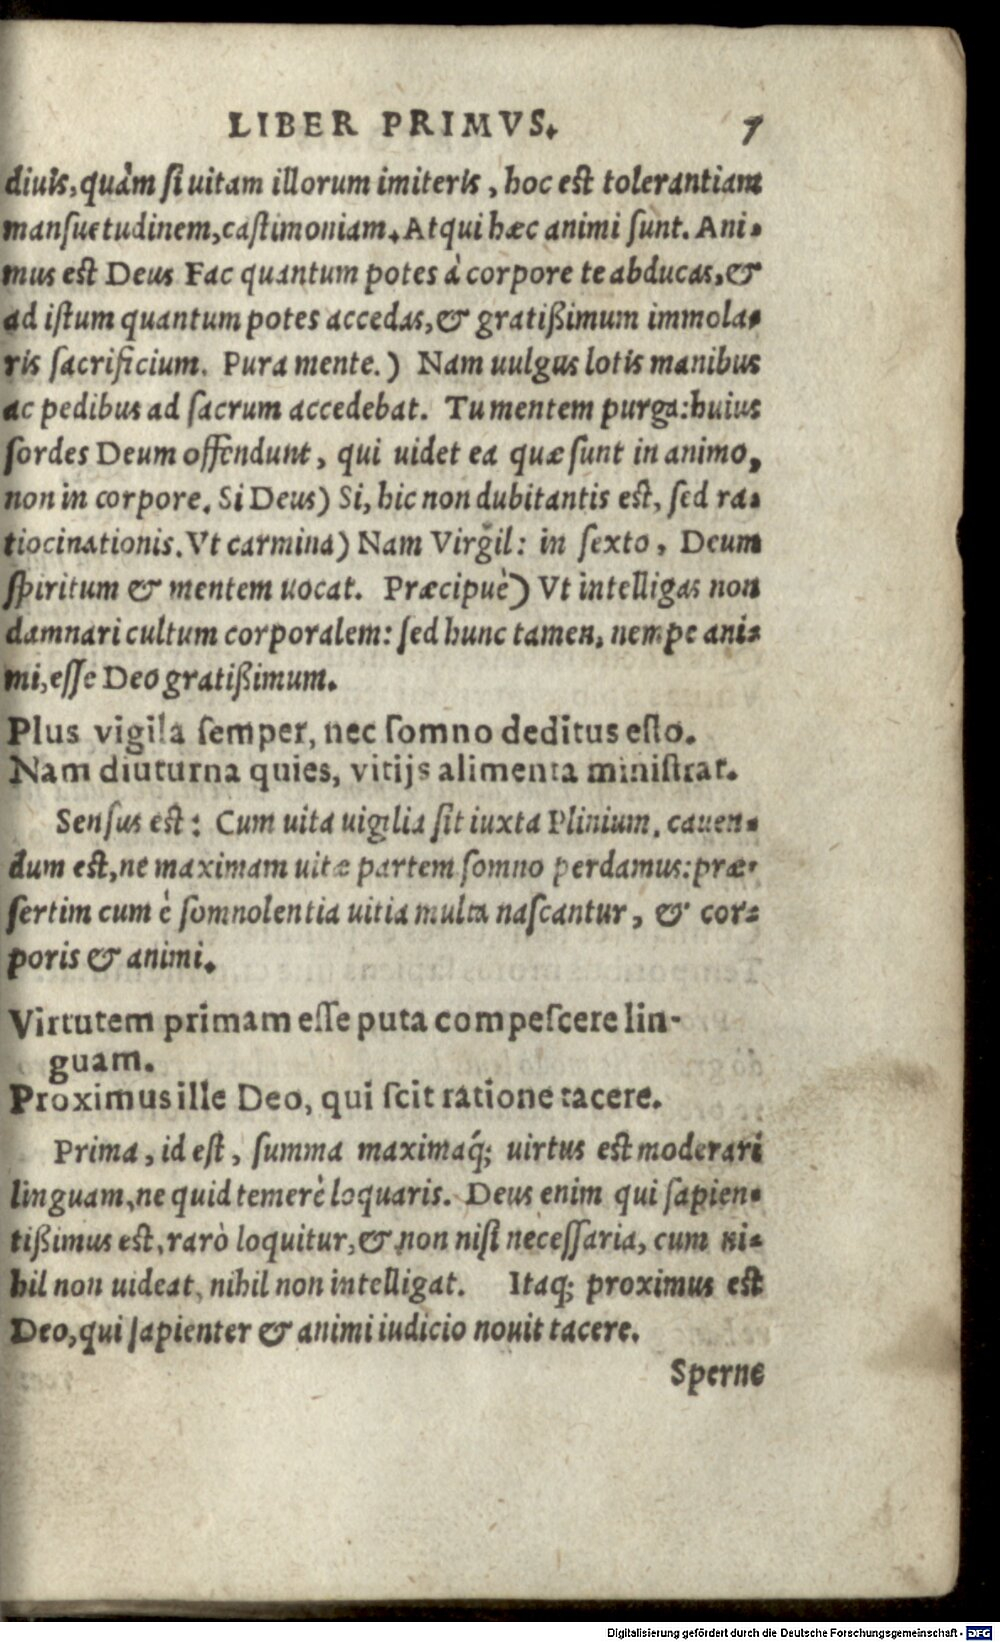 LIBER PRIMVS. 7
diuis, quàm si uitam illorum imiteris, hoc est tolerantiam
mansuetudinem, castimoniam. Atqui hæc animi sunt. Ani-
mus est Deus Fac quantum potes à corpore te abducas, &
ad istum quantum potes accedas, & gratißimum immola-
ris sacrificium. Pura mente.) Nam uulgus lotis manibus
ac pedibus ad sacrum accedebat. Tu mentem purga: huius
sordes Deum offendunt, qui uidet ea quæ sunt in animo,
non in corpore. Si Deus) Si, hic non dubitantis est, sed ra-
tiocinationis. Vt carmina) Nam Virgil: in sexto, Deum
spiritum & mentem uocat. Præcipuè) Vt intelligas non
damnari cultum corporalem: sed hunc tamen, nempe ani-
mi, esse Deo gratißimum.
Plus vigila semper, nec somno deditus esto.
Nam diuturna quies, vitijs alimenta ministrat.
Sensus est: Cum uita uigilia sit iuxta Plinium, cauen-
dum est, ne maximam uitæ partem somno perdamus: præ-
sertim cum è somnolentia uitia multa nascantur, & cor-
poris & animi.
Virtutem primam esse puta compescere lin-
guam.
Proximus ille Deo, qui scit ratione tacere.
Prima, id est, summa maximaq́; uirtus est moderari
linguam, ne quid temerè loquaris. Deus enim qui sapien-
tißimus est, rarò loquitur, & non nisi necessaria, cum ni-
hil non uideat, nihil non intelligat. Itaq; proximus est
Deo, qui sapienter & animi iudicio nouit tacere.
Sperne
Digitalisierung gefördert durch die Deutsche Forschungsgemeinschaft - DFG